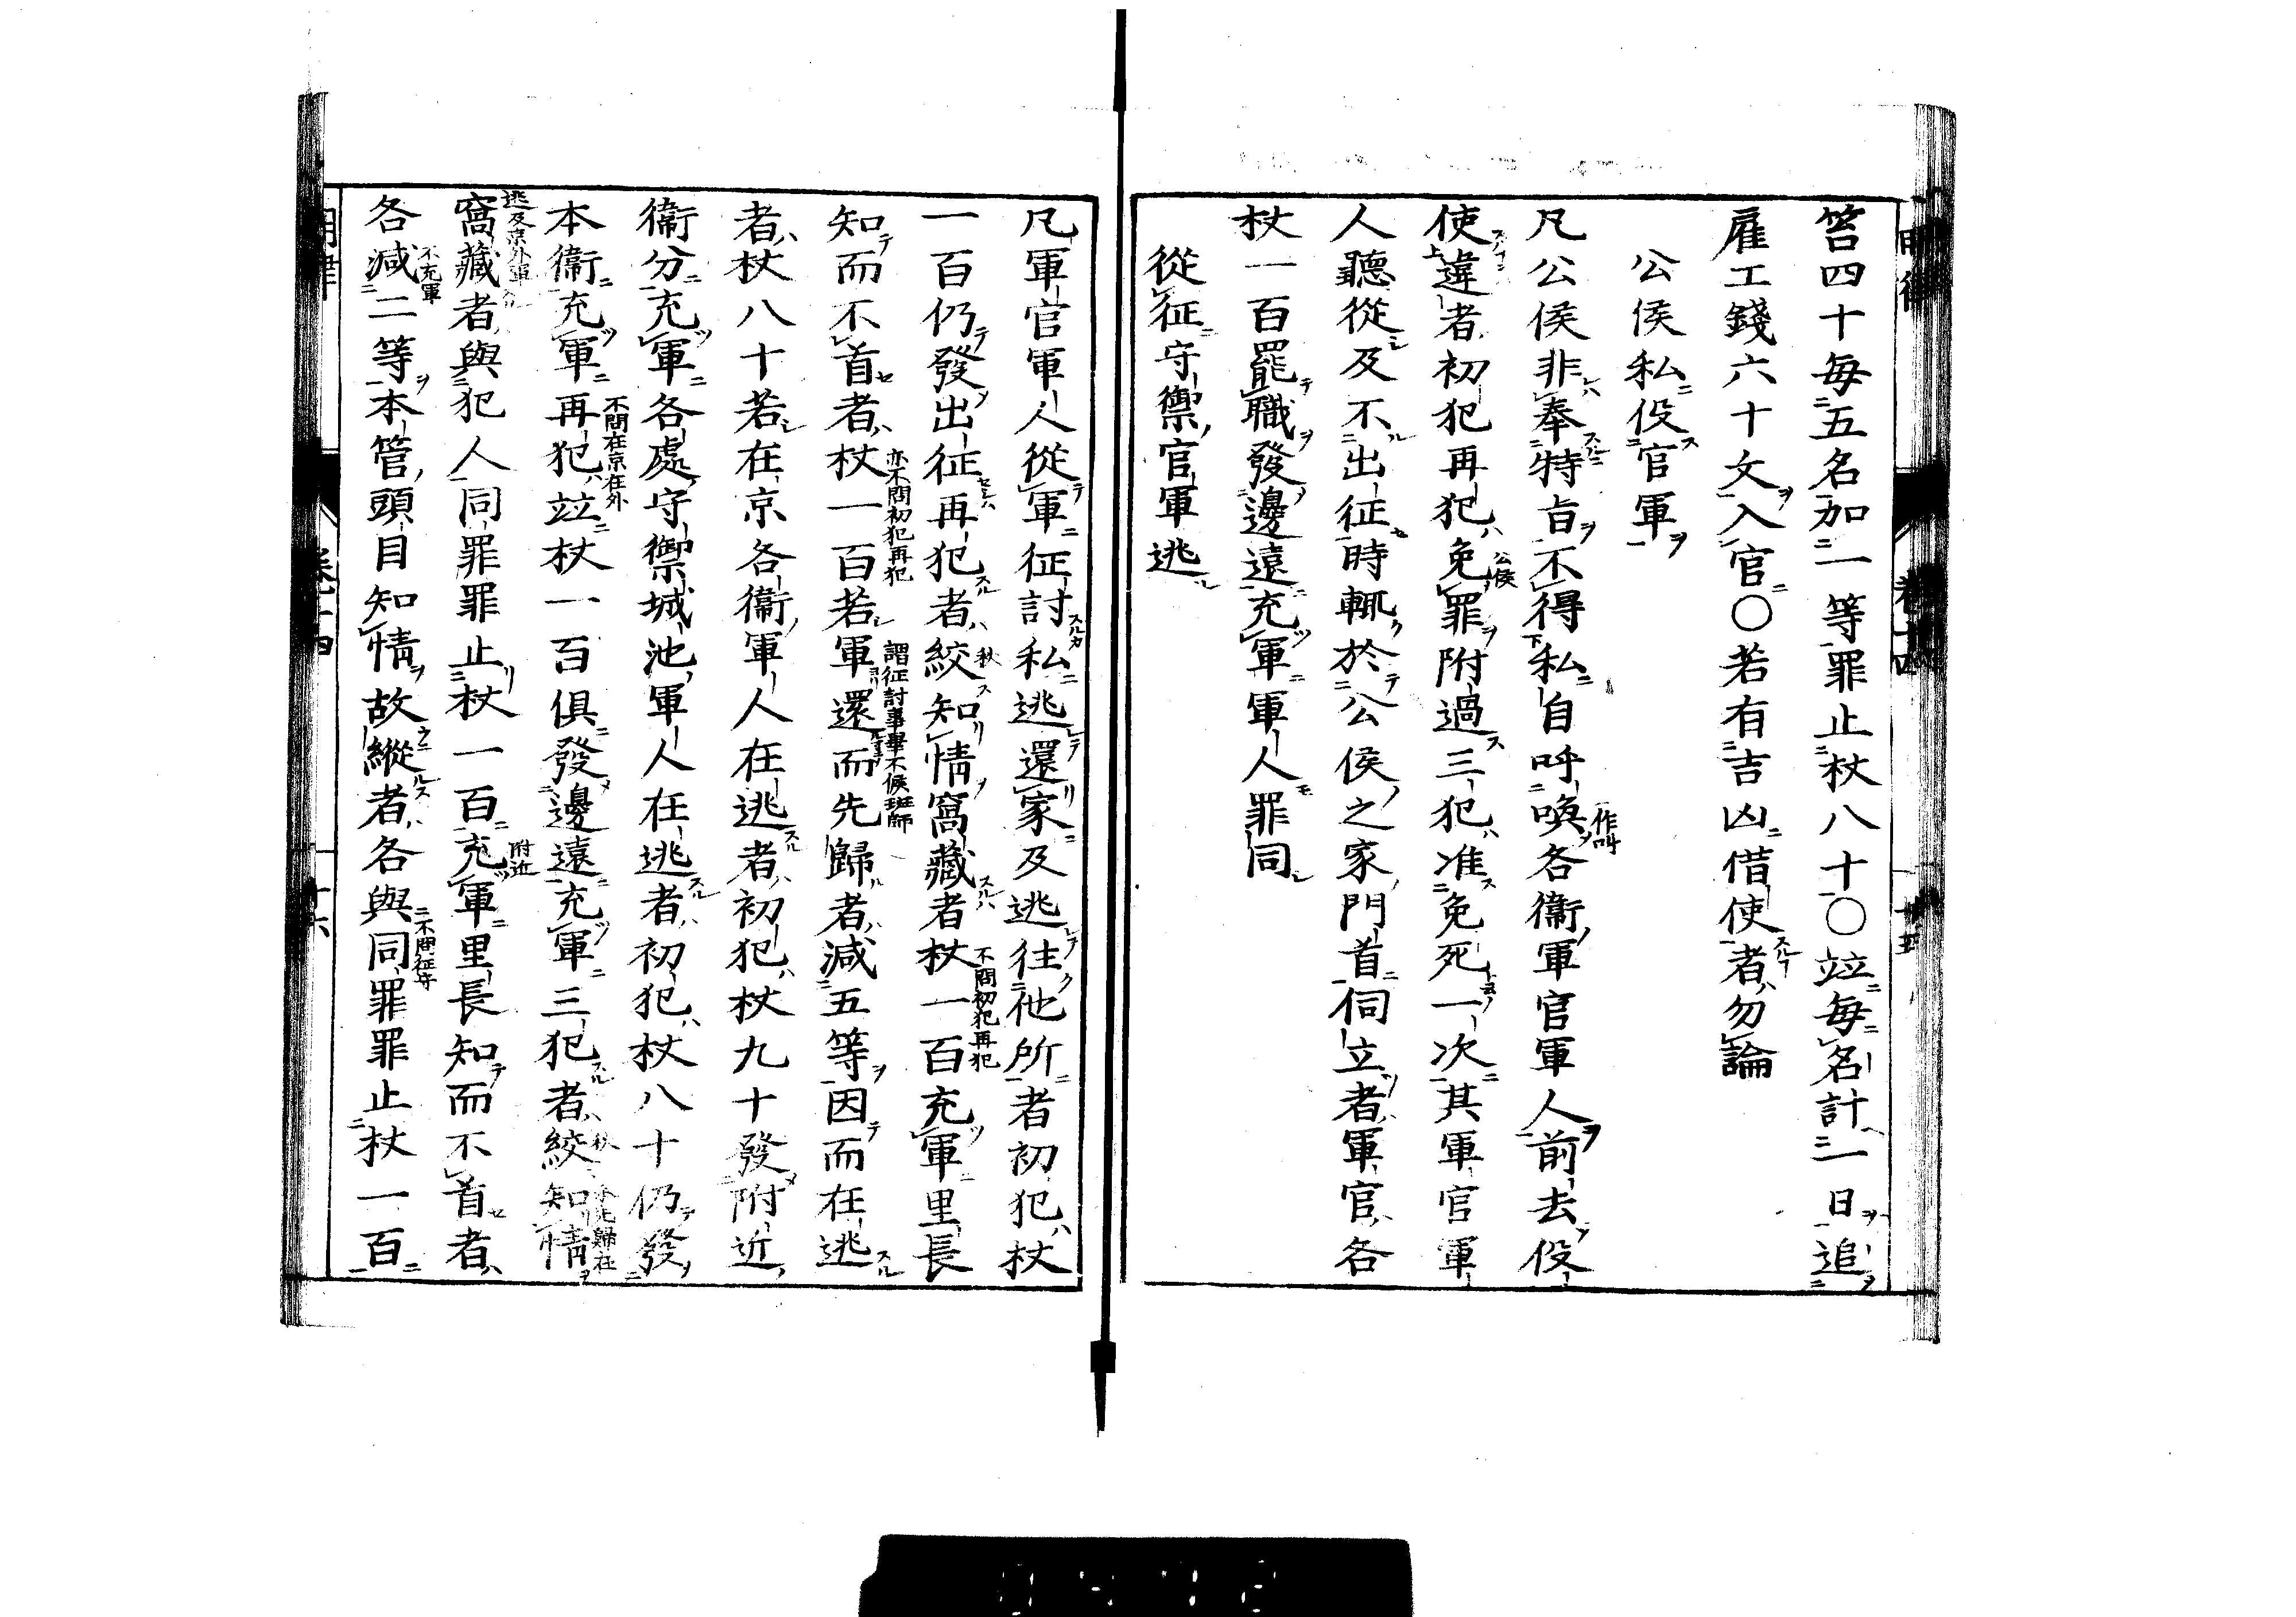 笞四十每五名加一等罪止杖八十〇竝每名計一日追
雇工錢六十文入官〇若有吉凶借使者勿論
公侯私役官軍
凡公侯非奉特旨不得私自呼喚各衞軍官軍人前去役
一作叫
使違者初犯再犯免罪附過三犯准免死一次其軍官軍
公侯
人聽從及不出征時輒於公侯之家門首伺立者軍官各
杖一百罷職發邊遠充軍軍人罪同
從征守禦官軍逃
凡軍官軍人從軍征討私逃還家及逃往他所者初犯杖
一百仍發出征再犯者絞知情窩藏者杖一百充軍里長
秋
不問初犯再犯
知而不首者杖一百若軍還而先歸者減五等因而在逃
亦不問初犯再犯
謂征討事畢不候班師
者杖八十若在京各衞軍人在逃者初犯杖九十發附近
衞分充軍各處守禦城池軍人在逃者初犯杖八十仍發
本衞充軍再犯竝杖一百俱發邊遠充軍三犯者絞知情
不問在京在外
秋
窩藏者與犯人同罪罪止杖一百充軍里長知而不首者
逃及京外軍
附近
各減二等本管頭目知情故縱者各與同罪罪止杖一百
不充軍
不問征守
卷十四
十六